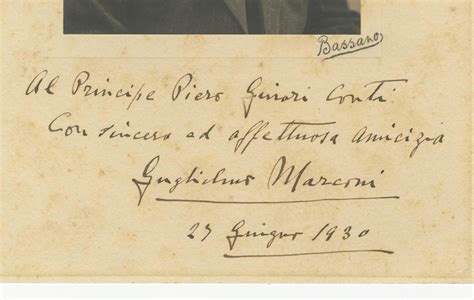 Bassano
Al Principe Piero Ginori Conti
Con sincera ed affettuosa amicizia
Guglielmo Marconi
27 Giugno 1930